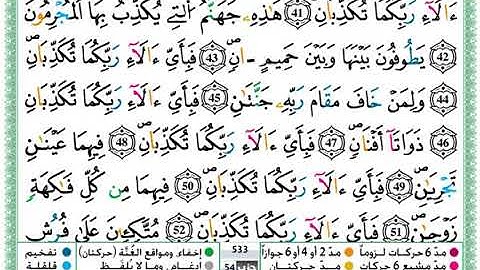 ءَالَآءِ رَبِّكُمَا تُكَذِّبَانِ 41 هَٰذِهِۦ جَهَنَّمُ ٱلَّتِى يُكَذِّبُ بِهَا ٱلْمُجْرِمُونَ
42 يَطُوفُونَ بَيْنَهَا وَبَيْنَ حَمِيمٍ ءَانٍ 43 فَبِأَىِّ ءَالَآءِ رَبِّكُمَا تُكَذِّبَانِ
44 وَلِمَنْ خَافَ مَقَامَ رَبِّهِۦ جَنَّتَانِ 45 فَبِأَىِّ ءَالَآءِ رَبِّكُمَا تُكَذِّبَانِ
46 ذَوَاتَآ أَفْنَانٍ 47 فَبِأَىِّ ءَالَآءِ رَبِّكُمَا تُكَذِّبَانِ 48 فِيهِمَا عَيْنَانِ
تَجْرِيَانِ 49 فَبِأَىِّ ءَالَآءِ رَبِّكُمَا تُكَذِّبَانِ 50 فِيهِمَا مِن كُلِّ فَٰكِهَةٍ
زَوْجَانِ 51 فَبِأَىِّ ءَالَآءِ رَبِّكُمَا تُكَذِّبَانِ 52 مُتَّكِـِٔينَ عَلَىٰ فُرُشٍۭ
مدّ 6 حركات لزوماً مدّ 2 أو 4 أو 6 جوازاً 533 إخفاء، ومواقع الغُنَّة (حركتان) تفخيم
مدّ مشبع 6 حركات مدّ حركتان 54 إدغام، وما لا يُلفَظ قلقلة